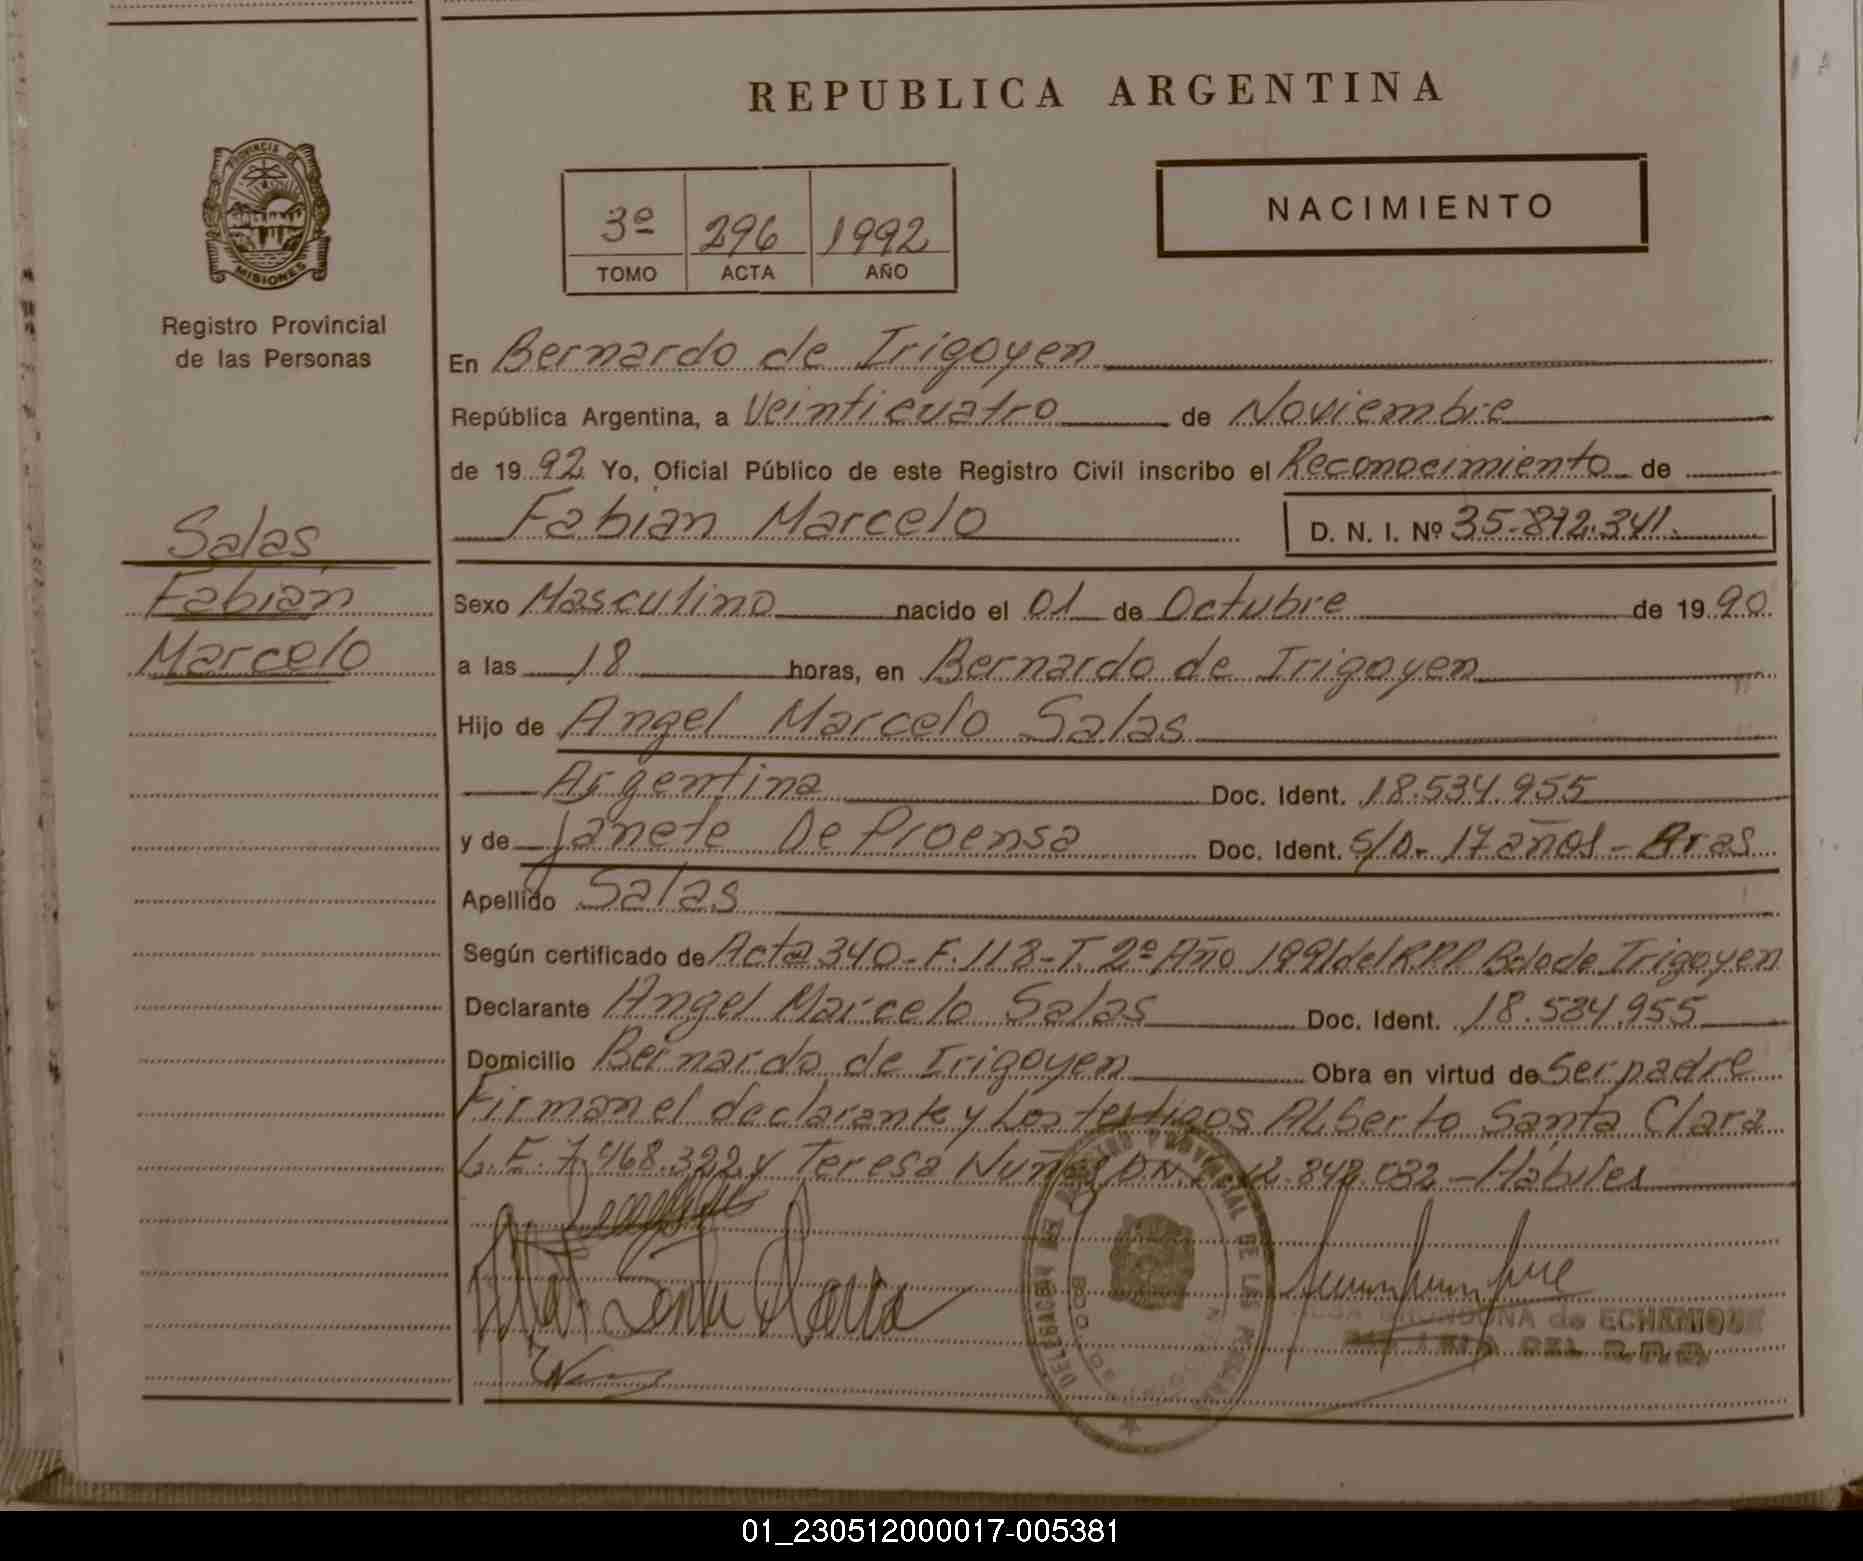 REPUBLICA ARGENTINA
PROVINCIA DE
MISIONES
Registro Provincial
de las Personas
3º 296 1992
TOMO ACTA AÑO
NACIMIENTO
En Bernardo de Irigoyen
República Argentina, a Veinticuatro de Noviembre
de 1992 Yo, Oficial Público de este Registro Civil inscribo el Reconocimiento de
Fabian Marcelo D. N. I. Nº 35.872.341.
Salas
Fabian
Marcelo
Sexo Masculino nacido el 01 de Octubre de 1990
a las 18 horas, en Bernardo de Irigoyen
Hijo de Angel Marcelo Salas
Argentina Doc. Ident. 18.534.955
y de Janete De Proensa Doc. Ident. S/D- 17 años - Bras
Apellido Salas
Según certificado de Acta 340-F.118-T. 2º Año 1991 del R.P.P Bdo de Irigoyen
Declarante Angel Marcelo Salas Doc. Ident. 18.534.955
Domicilio Bernardo de Irigoyen Obra en virtud de Ser padre
Firman el declarante y Los testigos Alberto Santa Clara
L.E. 7.468.322 y Teresa Nuñez DNI 12.842.032 - Hábiles
Albt. Santa Clara
DELEGACION DEL REGISTRO PROVINCIAL DE LAS PERSONAS
de ECHENIQUE
DEL R.P.P.
01_230512000017-005381